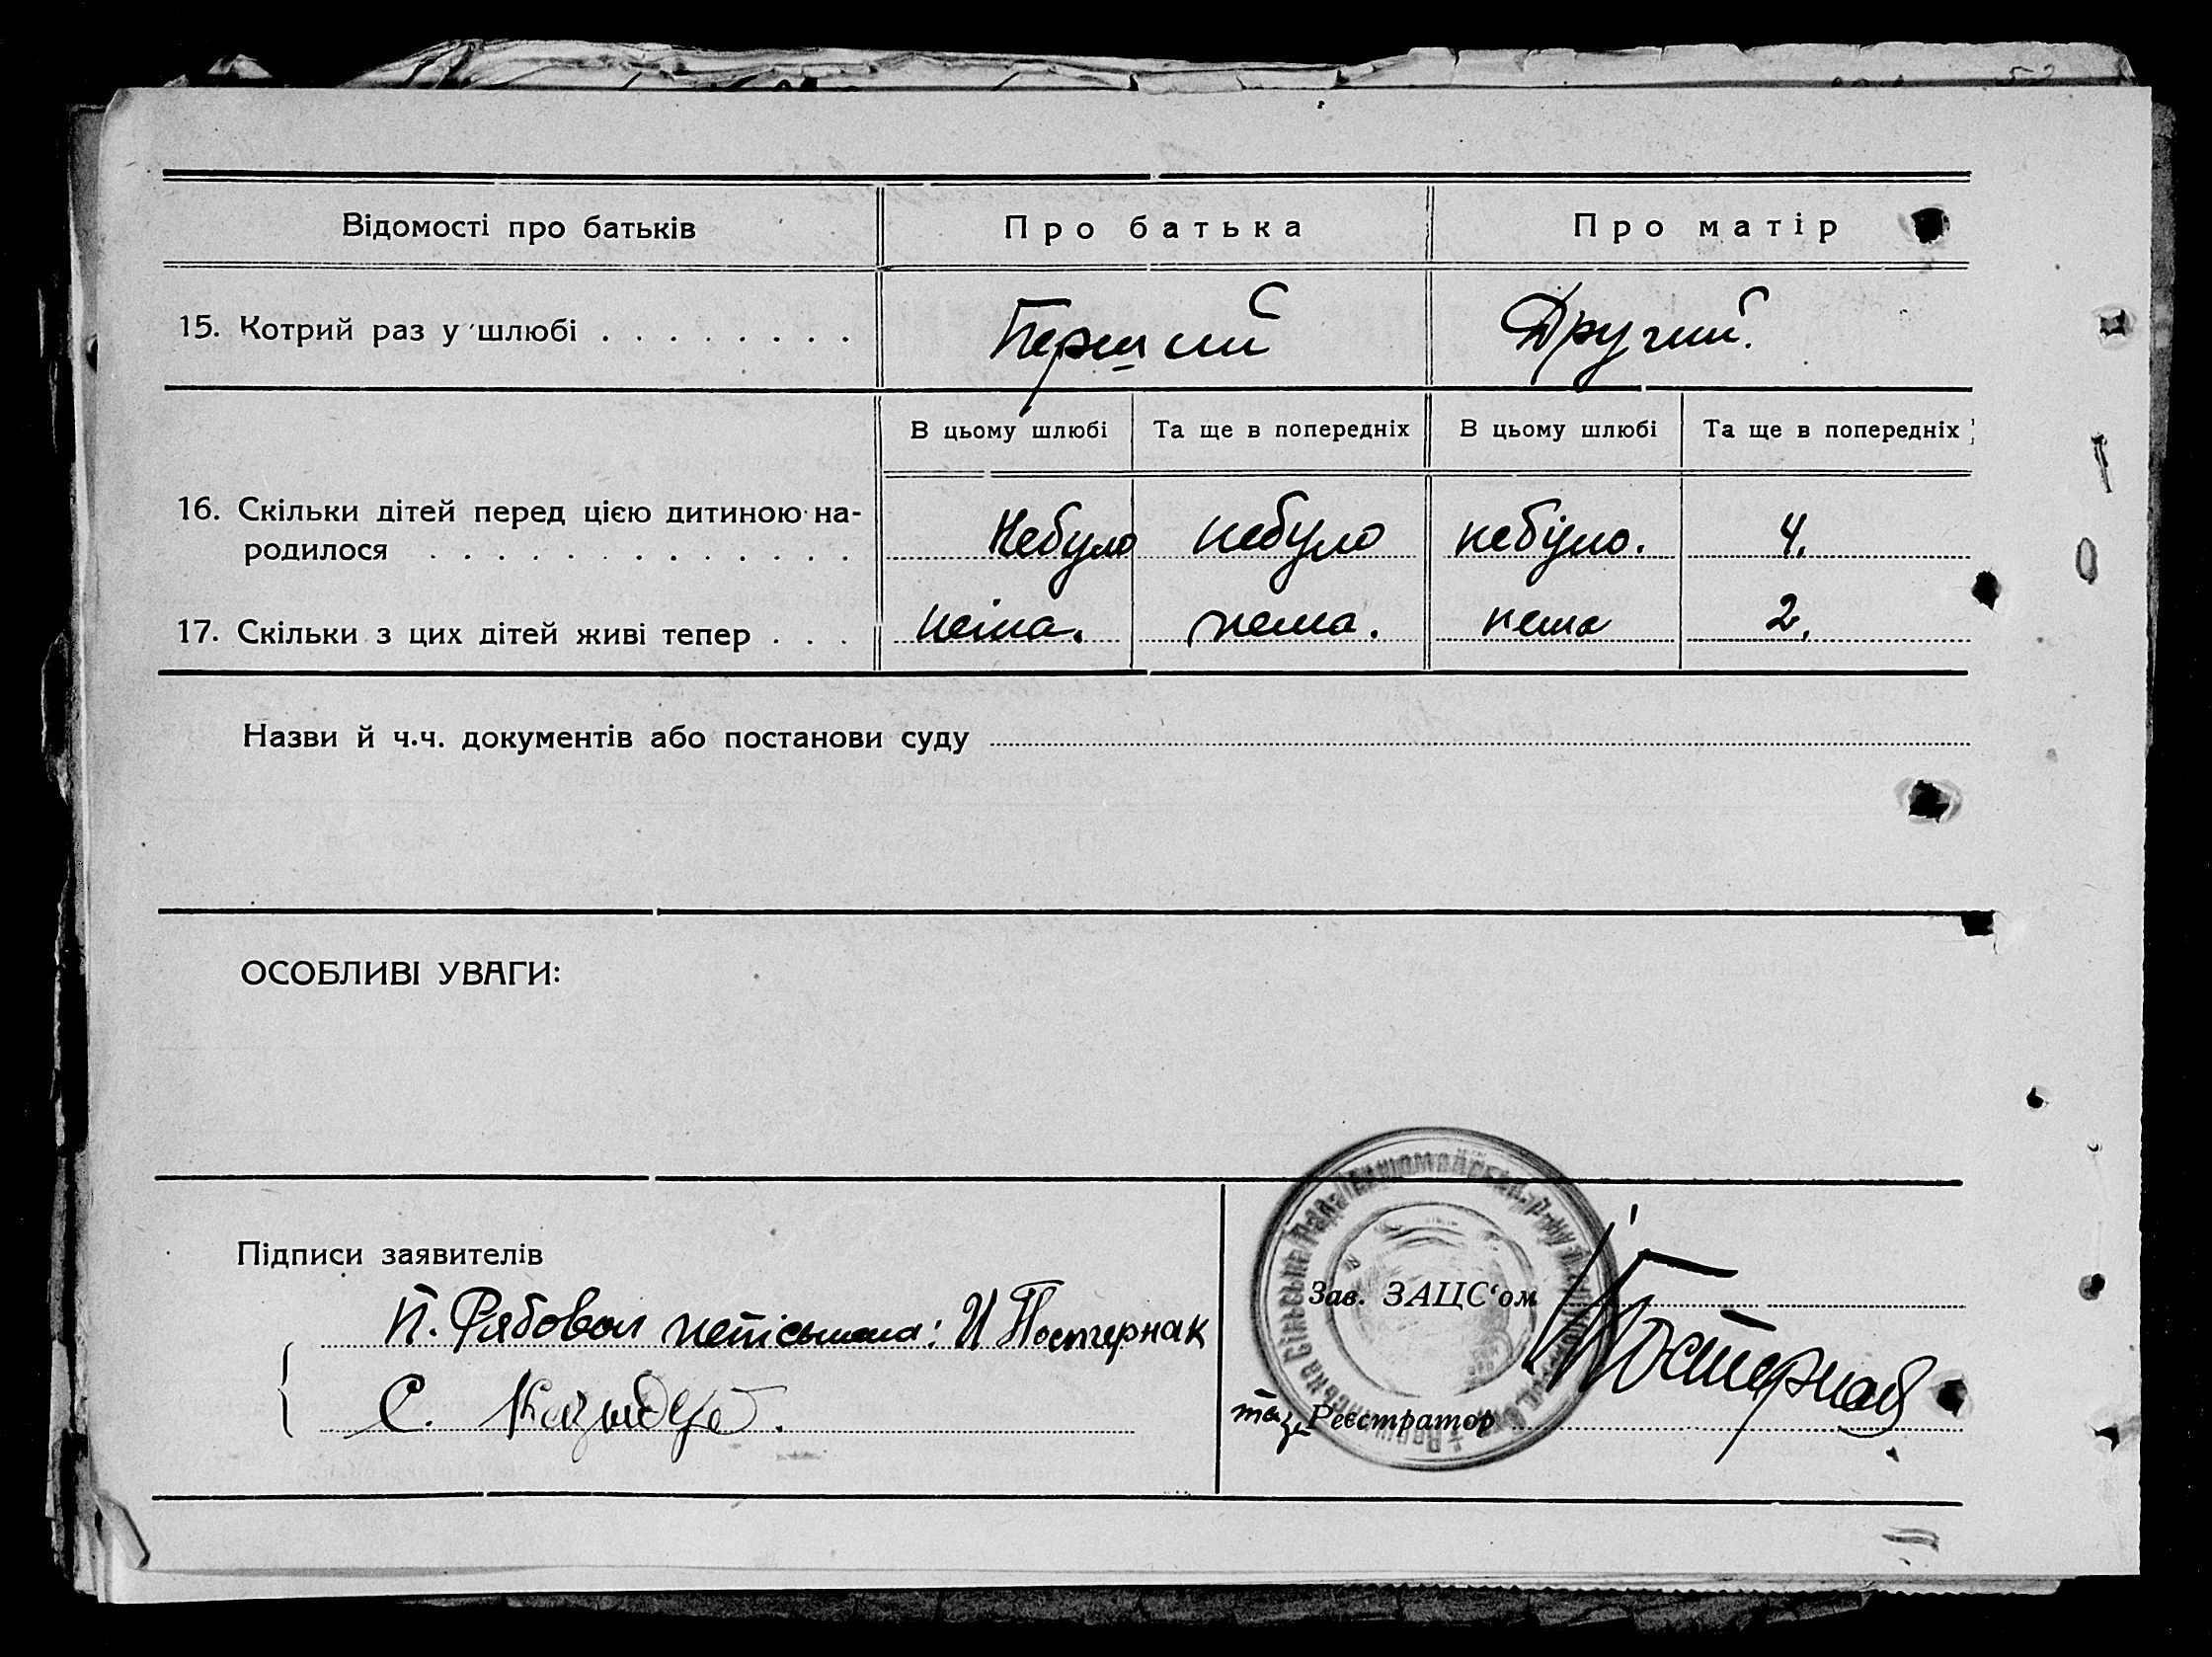 Відомості про батьків
Про батька
Про матір
15. Котрий раз у шлюбі . . . . . . . .
Перший
Другий.
В цьому шлюбі
Та ще в попередніх
В цьому шлюбі
Та ще в попередніх
16. Скільки дітей перед цією дитиною на-
родилося . . . . . . . . . . . . .
Небуло
небуло
небуло.
4.
17. Скільки з цих дітей живі тепер . . .
нема.
нема.
нема
2.
Назви й ч.ч. документів або постанови суду
ОСОБЛИВІ УВАГИ:
Підписи заявителів
П. Рябовол непісьмена: И Постернак
С.
Зав. ЗАЦС'ом
Постернак
Реєстратор